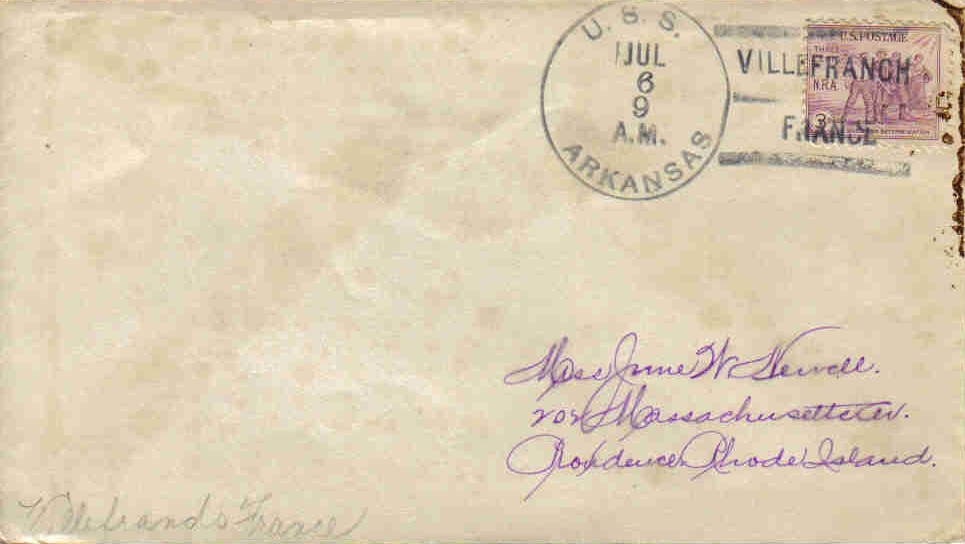 U. S. S.
JUL
6
9
A.M.
ARKANSAS
VILLEFRANCH
FRANCE
U.S. POSTAGE
THREE
N.R.A.
3
Miss June W Newell.
202 Massachusetts Av.
Providence Rhode Island.
Villefrands France